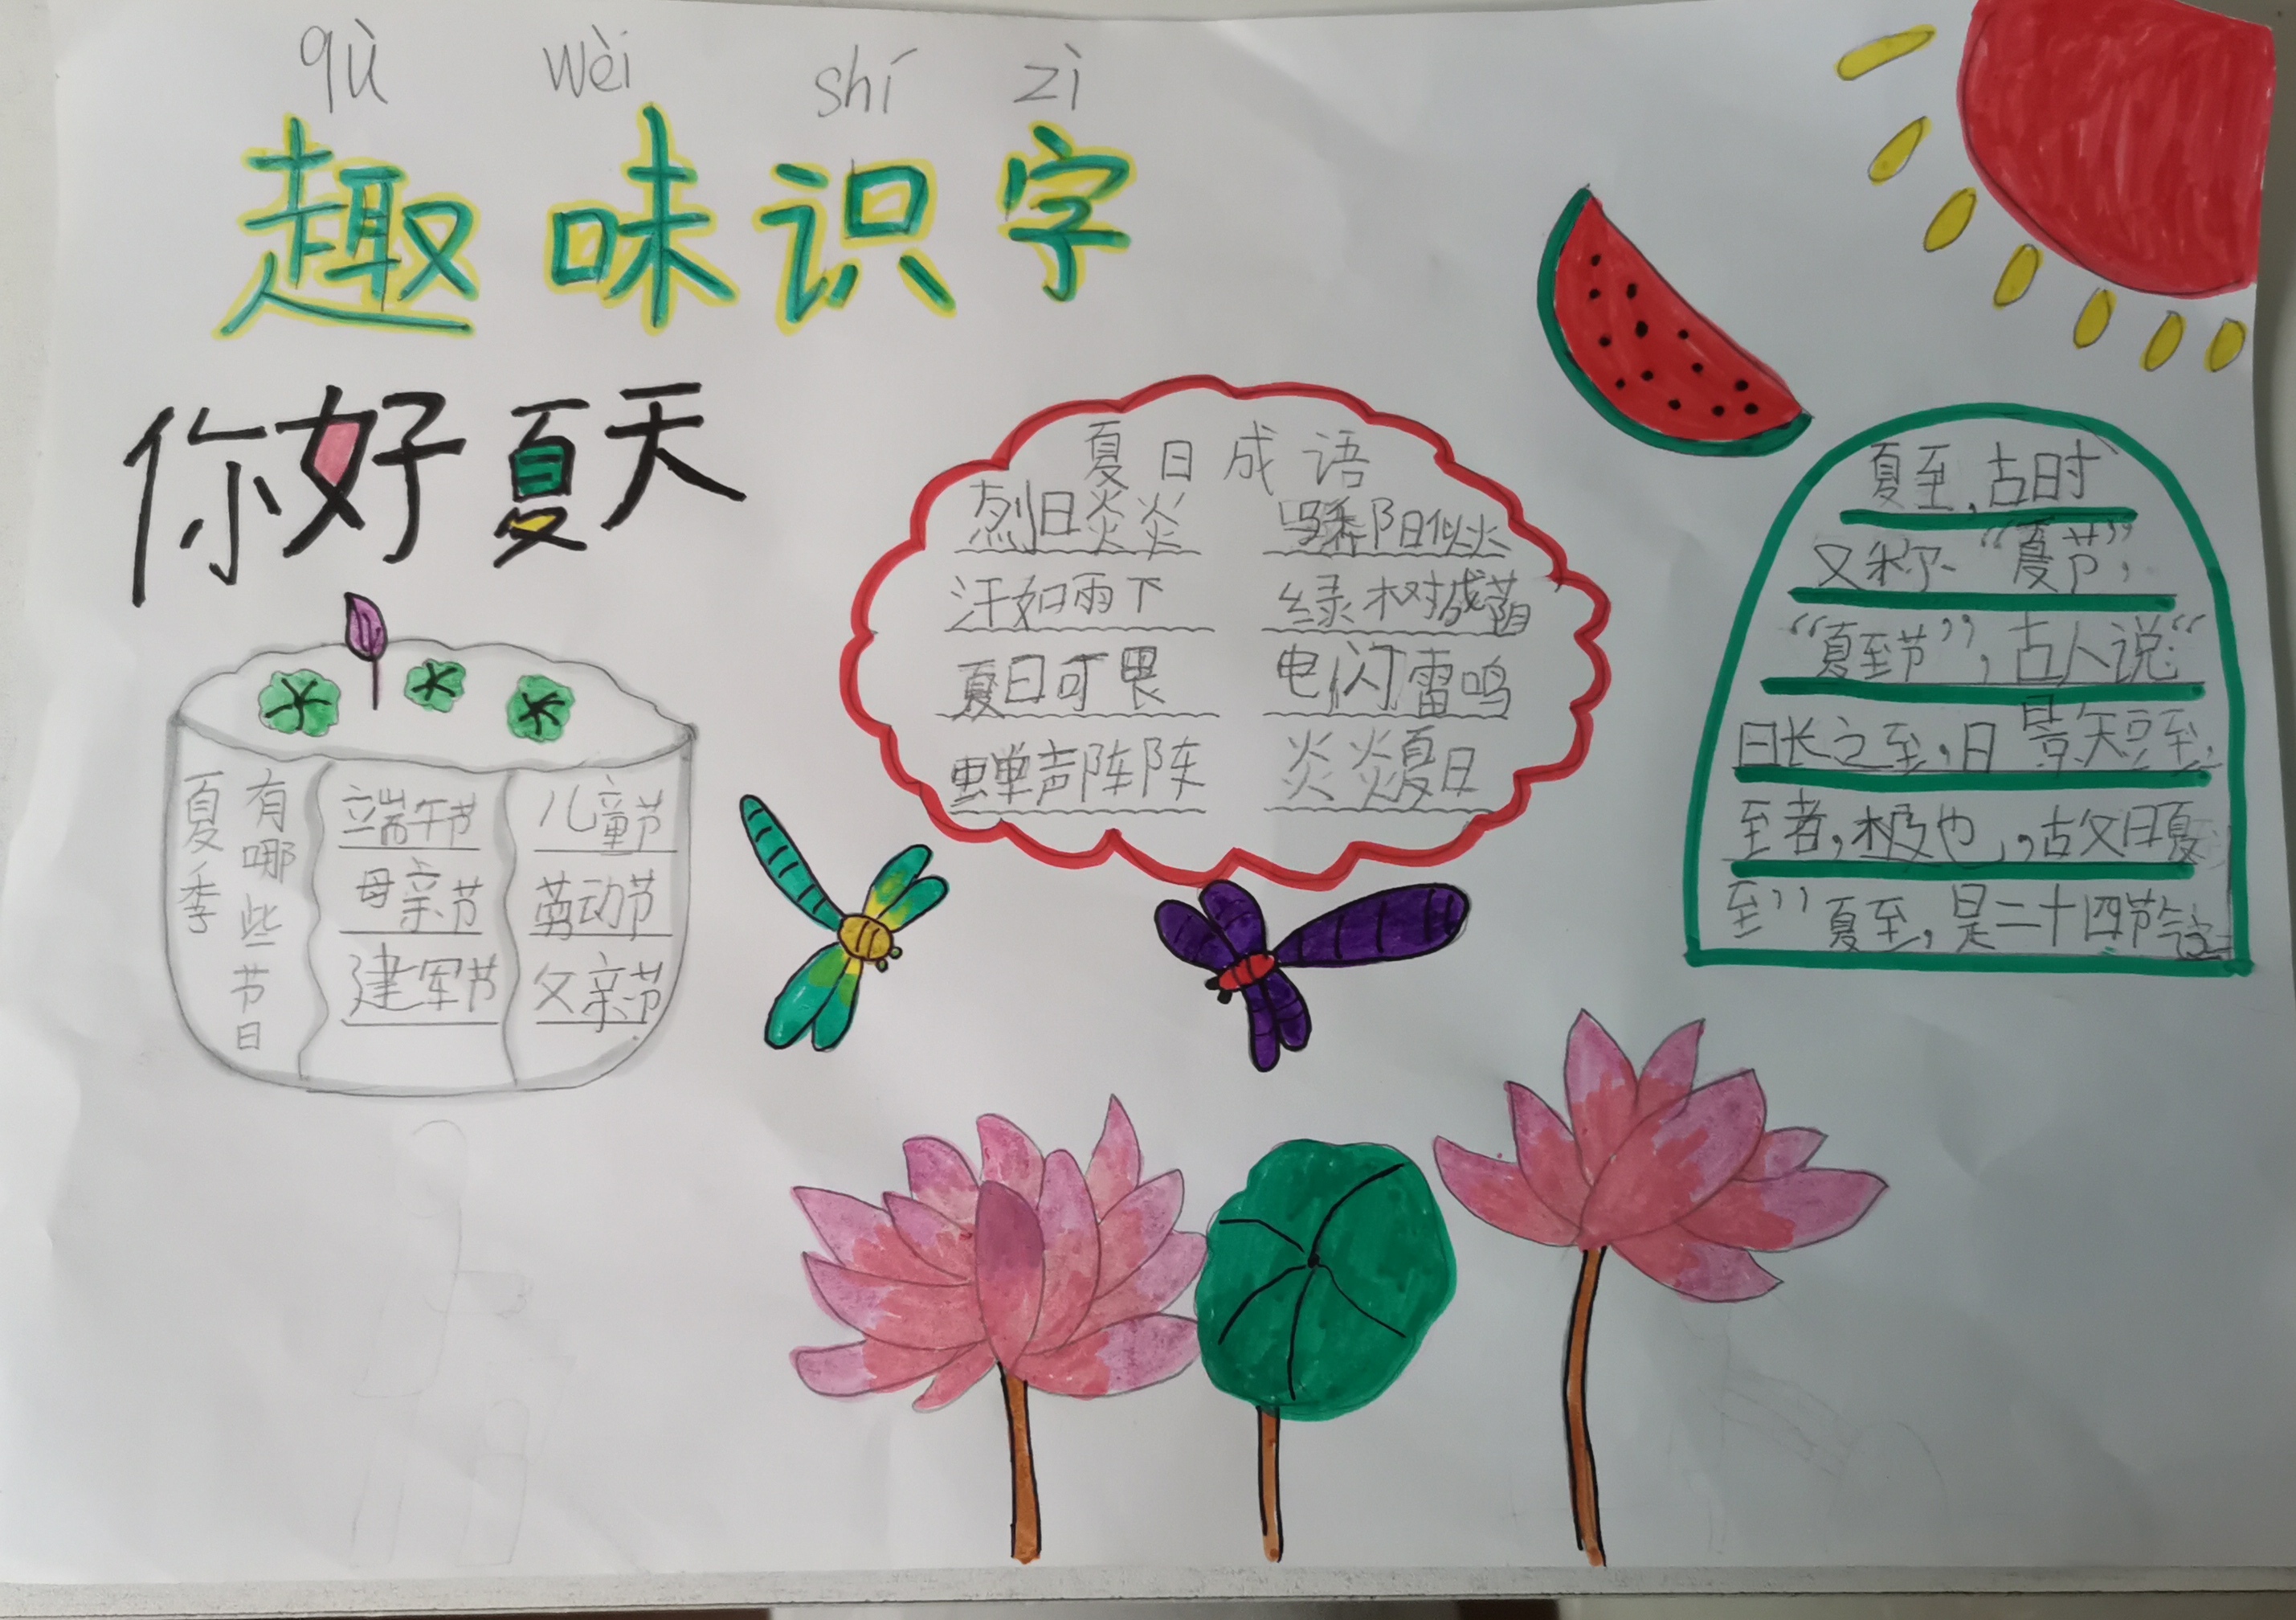 qù wèi shí zì
趣味识字
你好夏天
夏季
有哪些节日
端午节
母亲节
建军节
儿童节
劳动节
父亲节
夏日成语
烈日炎炎 骄阳似火
汗如雨下 绿树成荫
夏日可畏 电闪雷鸣
蝉声阵阵 炎炎夏日
夏至,古时
又称“夏节”,
“夏至节”,古人说:“
日长之至,日景短至,
至者,极也,古父日夏
至”夏至,是二十四节气